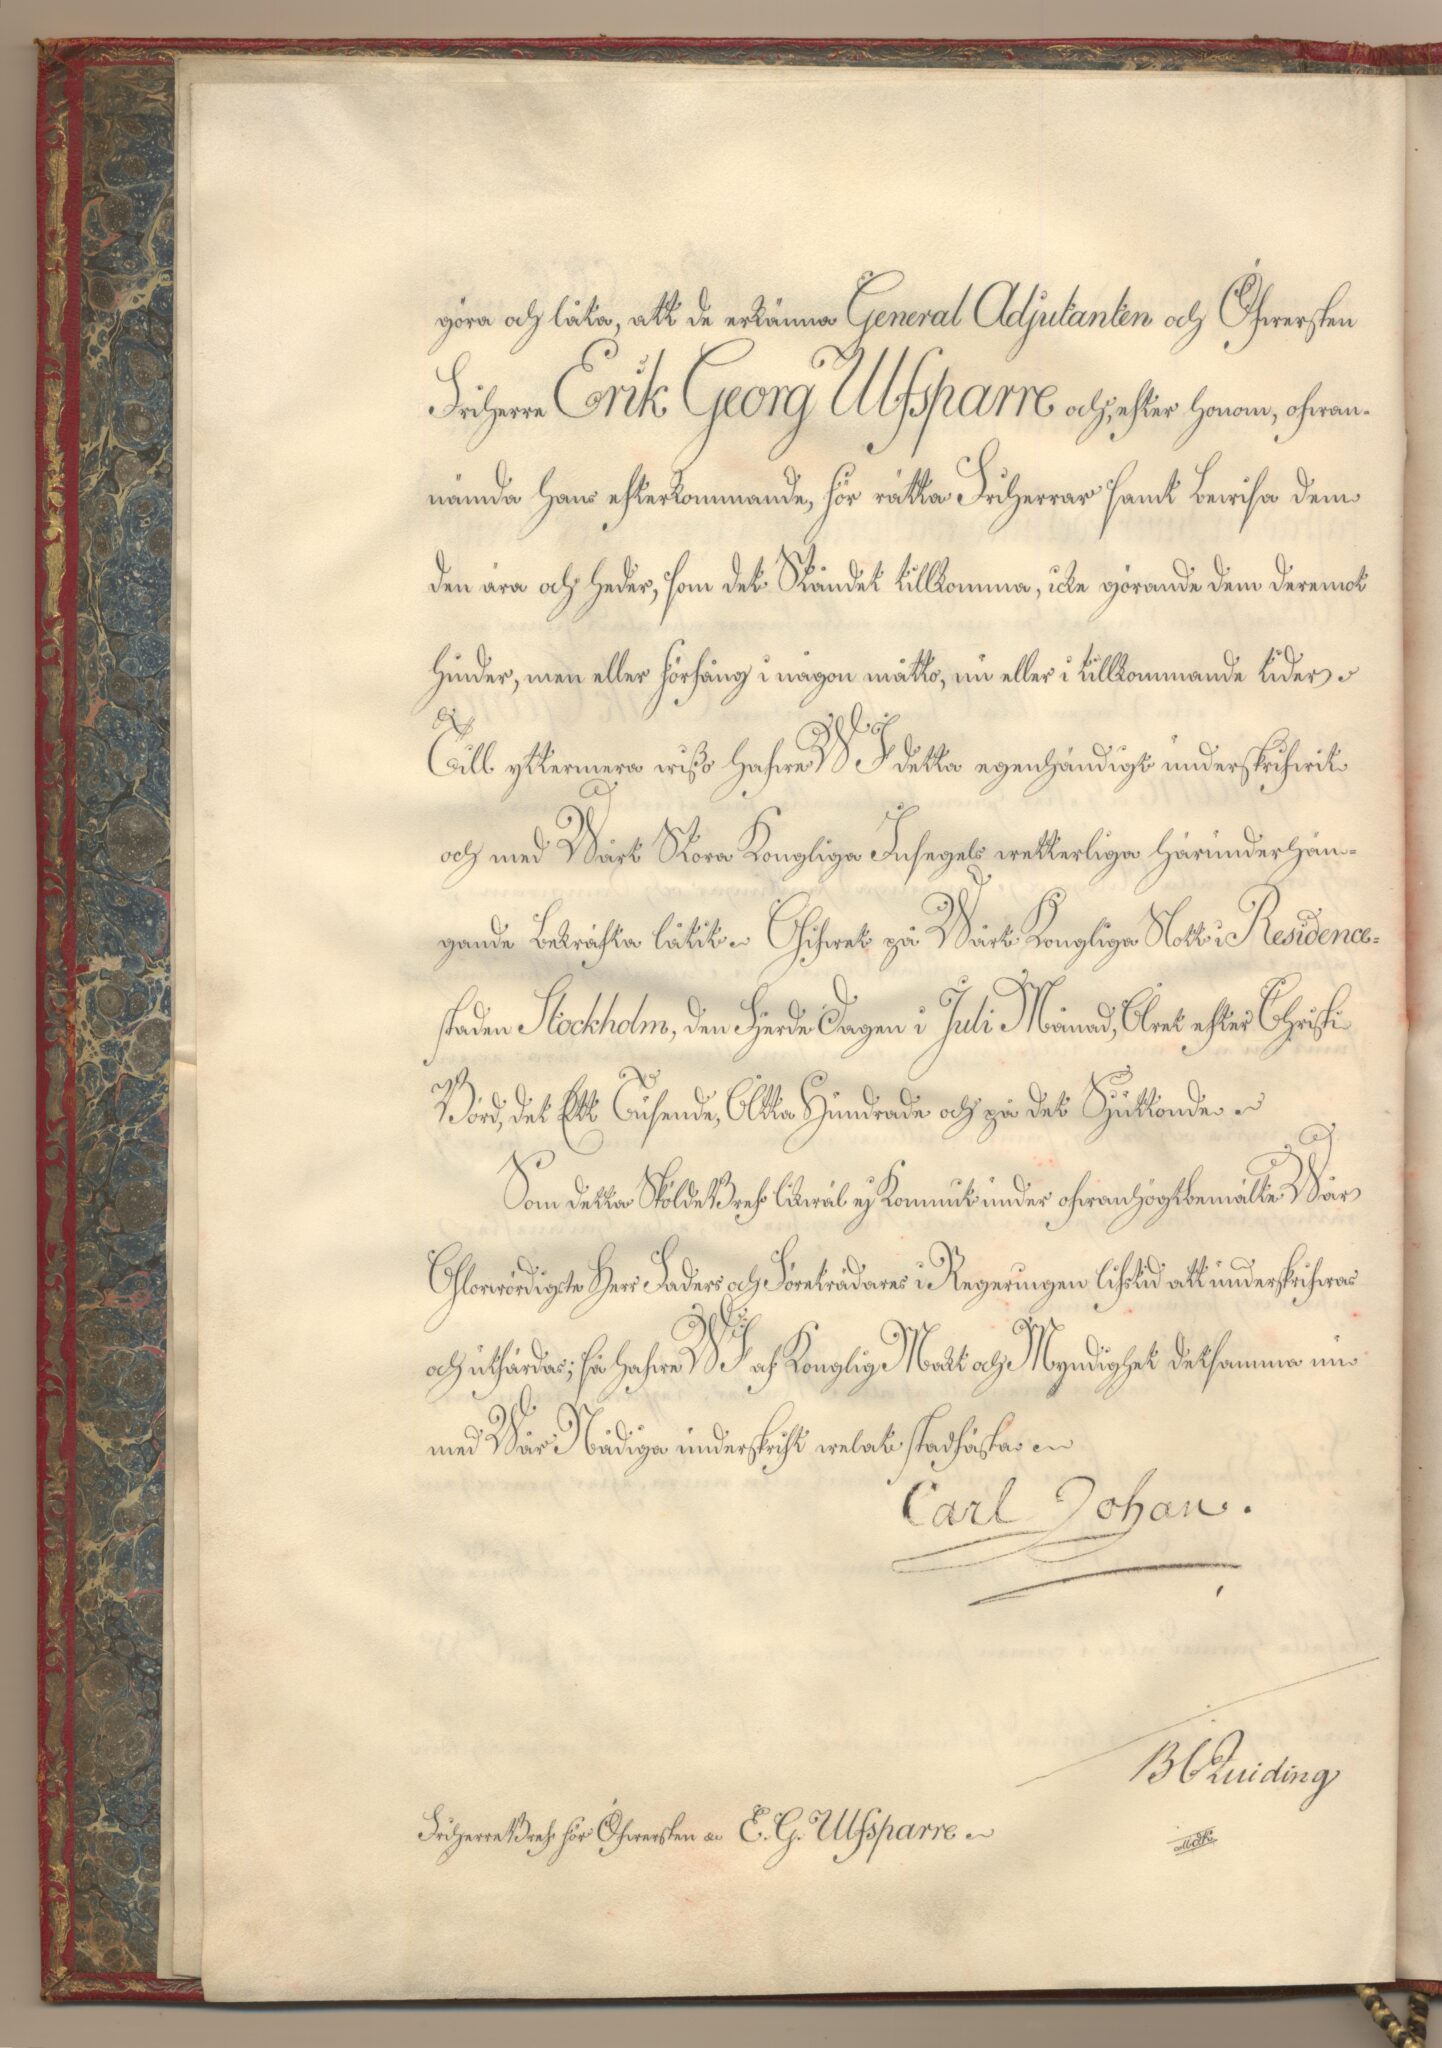 göra och låta, att de erkänna General Adjutanten och Öfwersten
Friherre Erik Georg Ulfsparre och, efter honom, ofwan-
nämda Hans efterkommande, för rätta Friherrar samt bewisa dem
den ära och heder, som det Ståndet tillkomma, icke görande dem deremot
hinder, men eller förfång i någon måtto, nu eller i tillkommande tider.
Till yttermera wißo hafwe Wi detta egenhändigt underskrifwit
och med Wårt Stora Kongliga Insegels wetterliga härunderhän-
gande bekräfta låtit. Gifwet på Wårt Kongliga Slott i Residence-
staden Stockholm, den Fjerde Dagen i Juli Månad, Året efter Christi
Börd, det Ett Tusende, Åtta Hundrade och på det Sjuttonde.
Som detta SköldeBref likwäl ej kommit under ofwanhögtbemälte Wår
Glorwördigste Herr Faders och Företrädares i Regeringen lifstid att underskrifwas
och utfärdas; så hafwe Wi af Konglig Makt och Myndighet detsamma nu
med Wår Nådiga underskrift welat stadfästa.
Carl Johan.
B C Quiding
FriherreBref för Öfwersten &c E. G. Ulfsparre